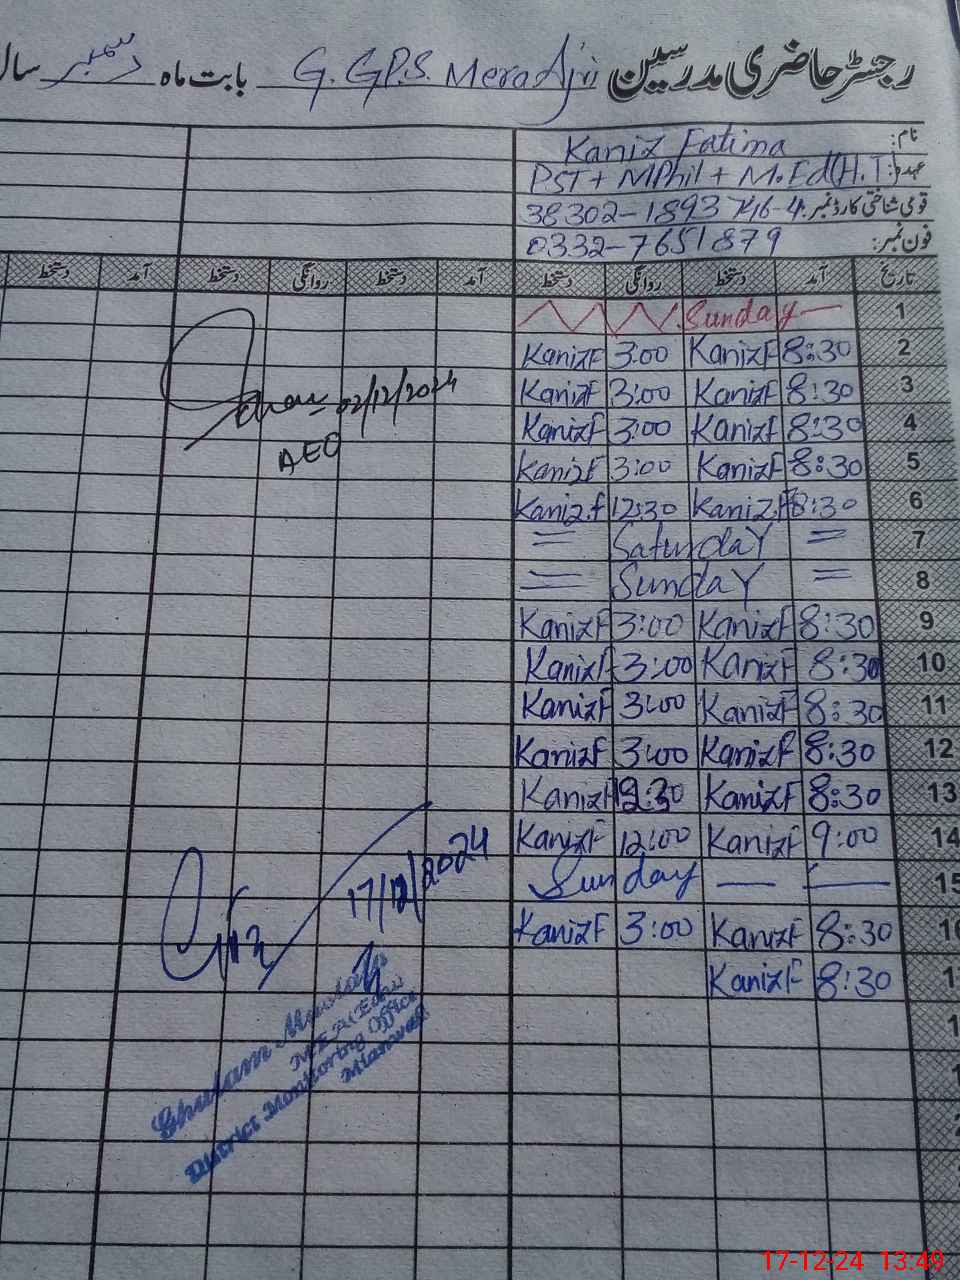 رجسٹر حاضری مدرسین G. GP.S. Mera Ajri بابت ماہ دسمبر سال
نام: Kaniz Fatima
عہدہ: PST + MPhil + M.Ed(H.T)
قومی شناختی کارڈ نمبر: 38302-1893746-4
فون نمبر: 0332-7651879
تاریخ آمد دستخط روانگی دستخط آمد دستخط روانگی دستخط آمد دستخط
1 Sunday
2 8:30 KanizF 3:00 KanizF
3 8:30 KanizF 3:00 KanizF
4 8:30 KanizF 3:00 KanizF
5 8:30 KanizF 3:00 KanizF
6 8:30 Kaniz.F 12:30 Kaniz.f
7 = Saturday =
8 = Sunday =
9 8:30 KanizF 3:00 KanizF
10 8:30 KanizF 3:00 KanizF
11 8:30 KanizF 3:00 KanizF
12 8:30 KanizF 3:00 KanizF
13 8:30 KanizF 12:30 KanizF
14 9:00 KanizF 12:00 KanizF
15 Sunday
16 8:30 KanizF 3:00 KanizF
17 8:30 KanizF
02/12/2024
AEO
17/12/2024
Ghulam
District Monitoring Office
Mianwali
17-12-24 13:49